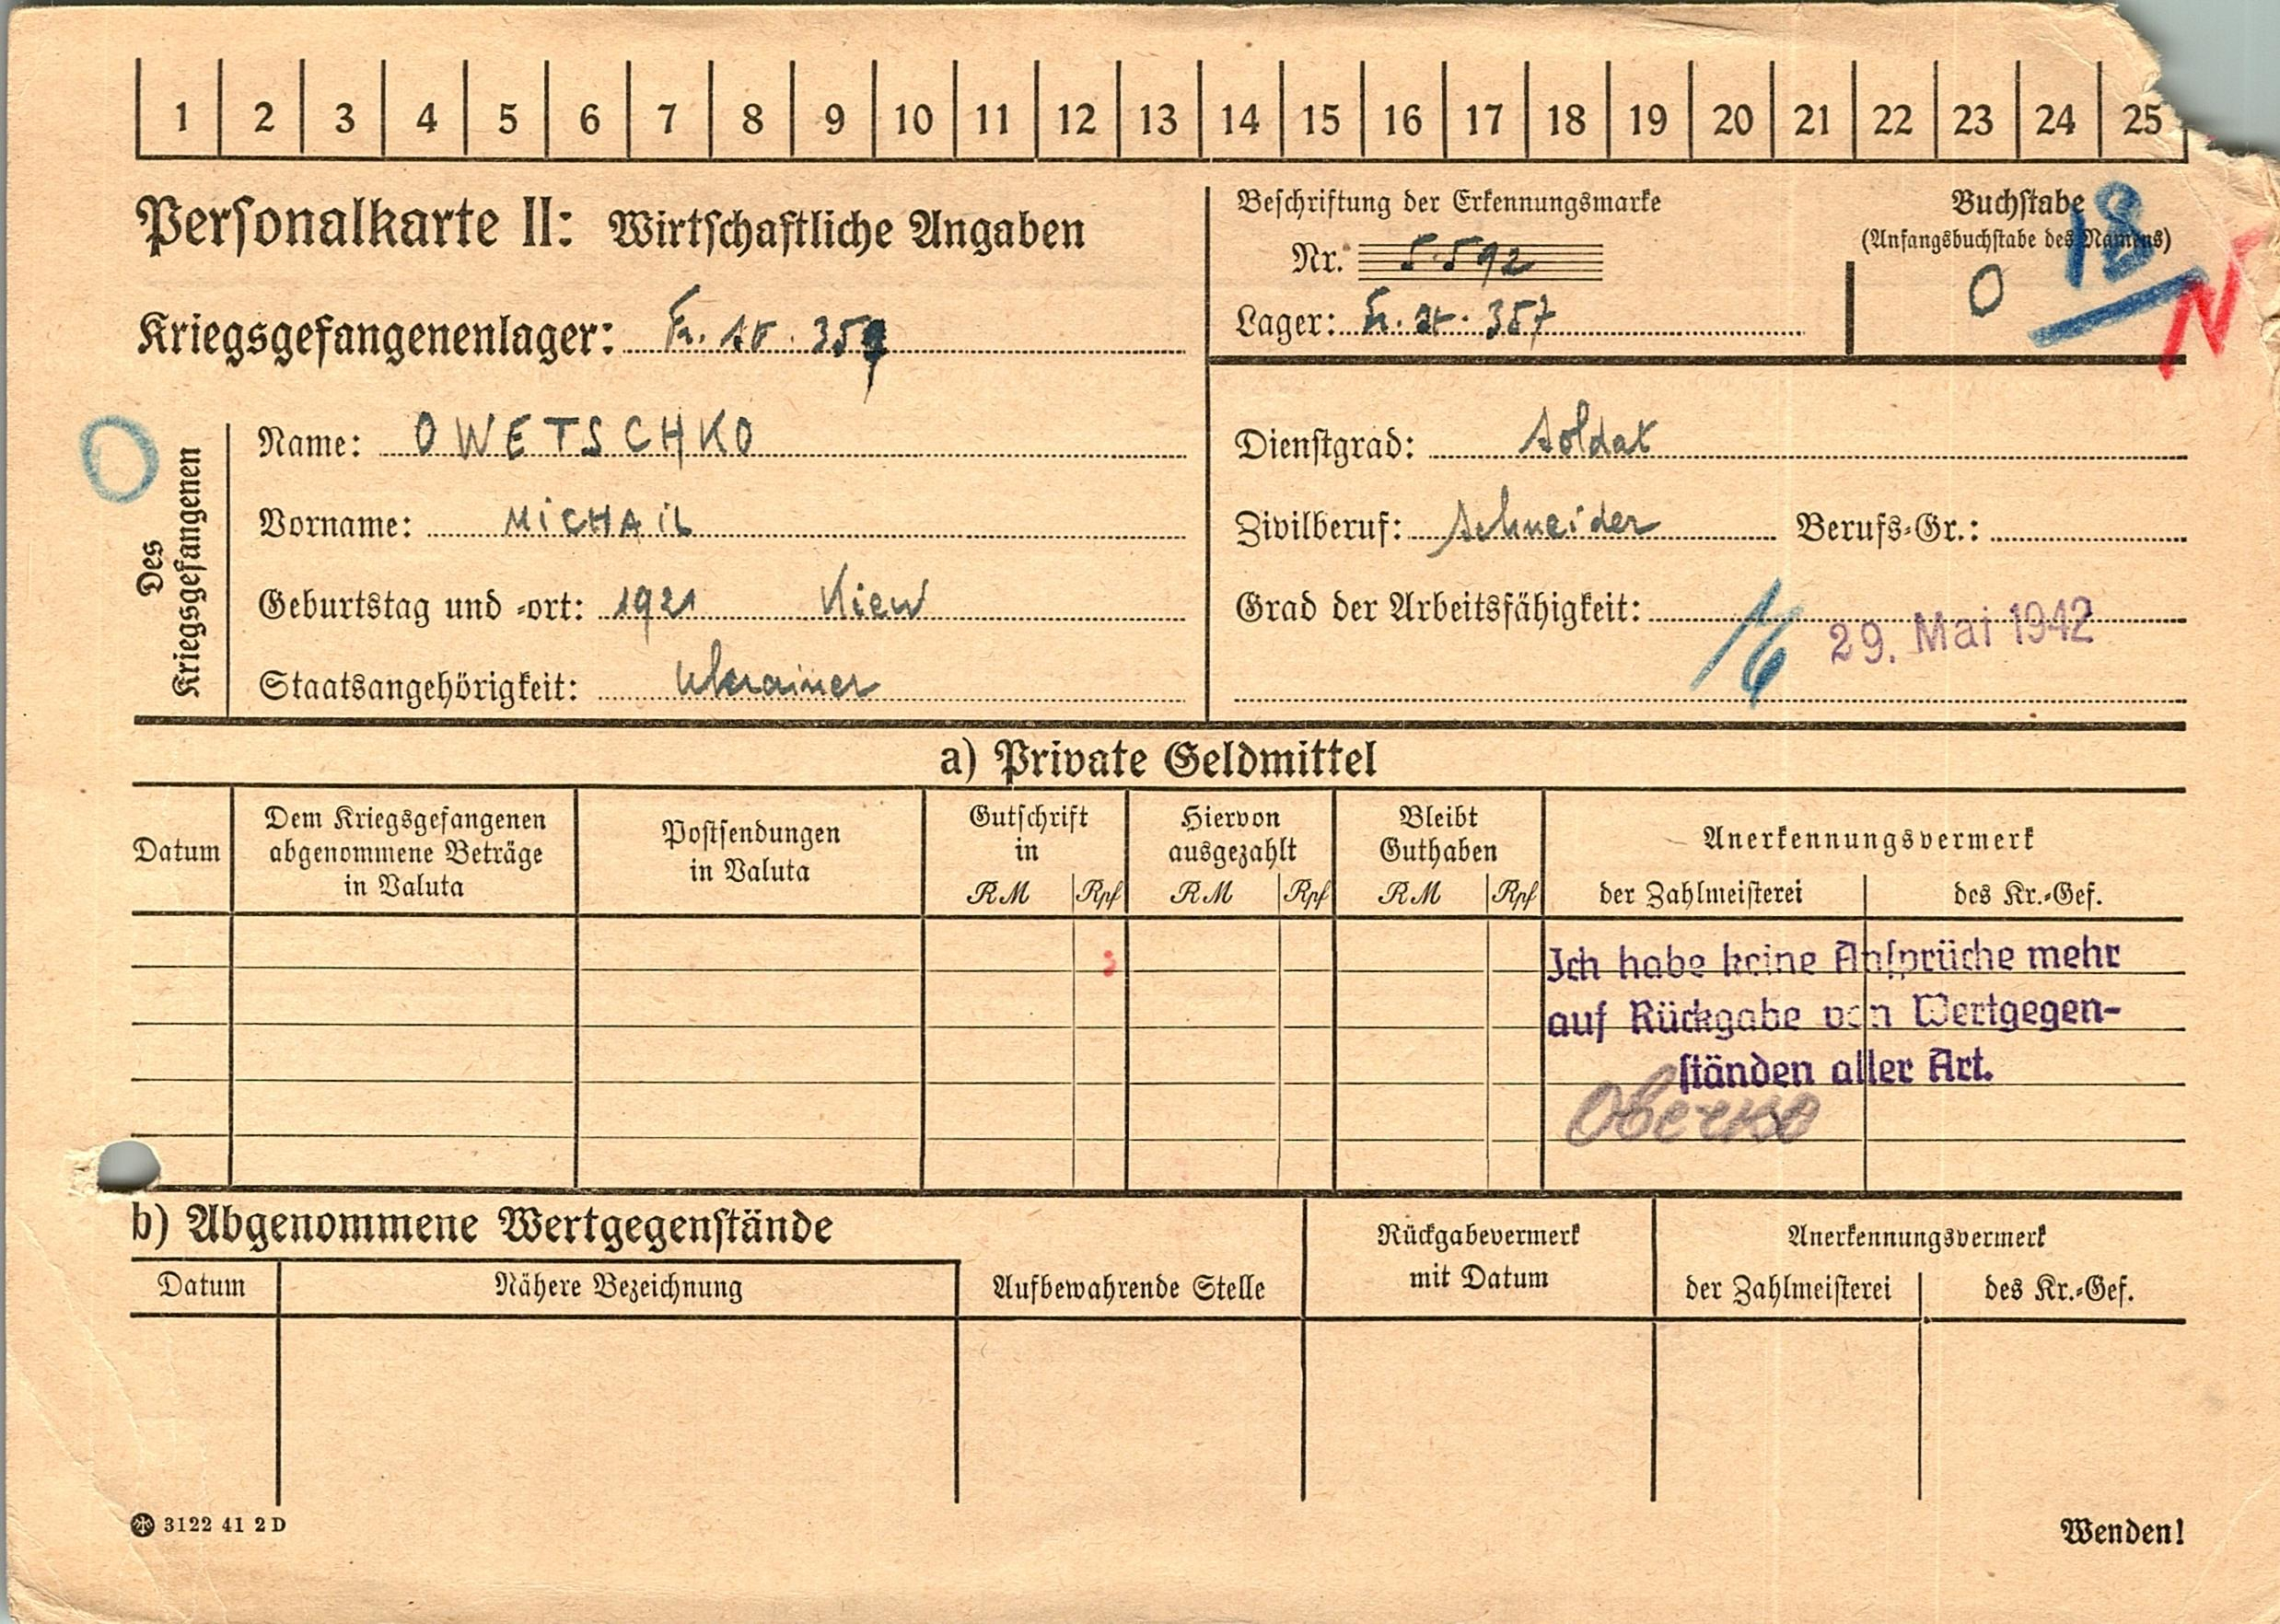 1 2 3 4 5 6 7 8 9 10 11 12 13 14 15 16 17 18 19 20 21 22 23 24 25
Personalkarte II: Wirtschaftliche Angaben
Beschriftung der Erkennungsmarke
Nr. 5592
Lager: Fr. St. 357
Buchstabe
(Anfangsbuchstabe des Namens)
O
18
N
Kriegsgefangenenlager: Fr. St. 357
O
Des Kriegsgefangenen
Name: OWETSCHKO
Vorname: MiCHAiL
Geburtstag und -ort: 1921 Kiew
Staatsangehörigkeit: Ukrainer
Dienstgrad: Soldat
Zivilberuf: Schneider Berufs-Gr.:
Grad der Arbeitsfähigkeit:
29. Mai 1942
a) Private Geldmittel
Datum
Dem Kriegsgefangenen
abgenommene Beträge
in Valuta
Postsendungen
in Valuta
Gutschrift
in
RM Rpf
Hiervon
ausgezahlt
RM Rpf
Bleibt
Guthaben
RM Rpf
Anerkennungsvermerk
der Zahlmeisterei des Kr.-Gef.
Ich habe keine Ansprüche mehr
auf Rückgabe von Wertgegen-
ständen aller Art.
b) Abgenommene Wertgegenstände
Datum Nähere Bezeichnung
Aufbewahrende Stelle
Rückgabevermerk
mit Datum
Anerkennungsvermerk
der Zahlmeisterei des Kr.-Gef.
3122 41 2 D
Wenden!